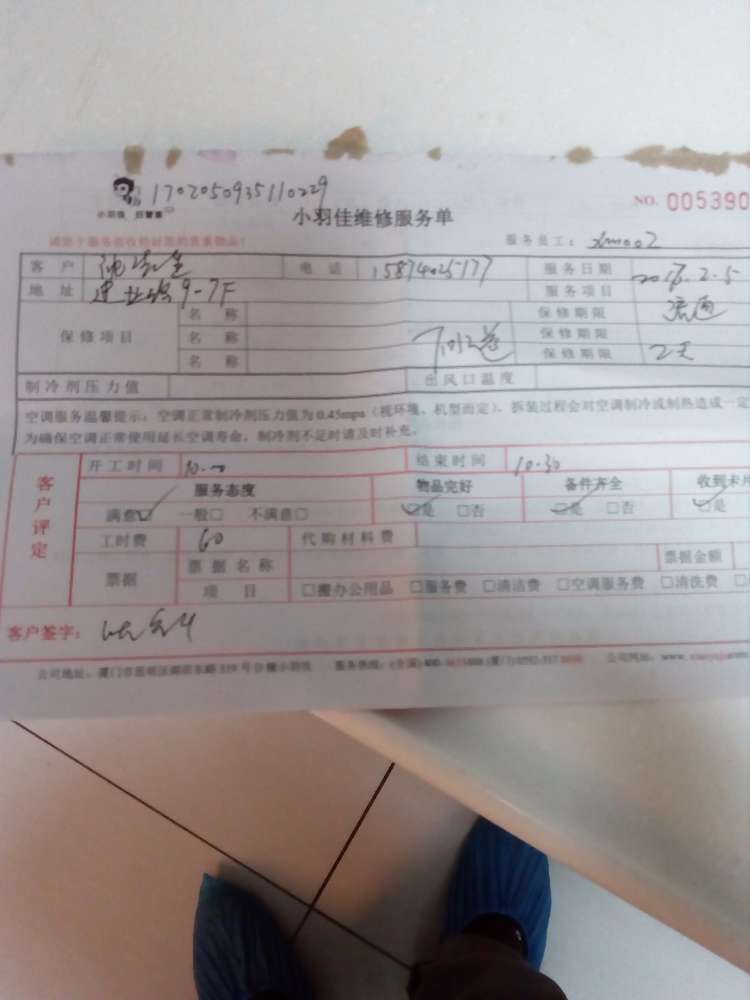 1702050935110229
小羽佳 好管家
小羽佳维修服务单
NO. 005390
请您于服务前收检好您的贵重物品!
服务员工: xm002
客户 电话 15874025177 服务日期 2017.2.5
地址 9-7F 服务项目 疏通
保修项目 名称 保修期限
名称 保修期限
名称 保修期限 2天
制冷剂压力值 出风口温度
空调服务温馨提示:空调正常制冷剂压力值为0.45mpa(视环境、机型而定)。拆装过程会对空调制冷或制热造成一定
为确保空调正常使用延长空调寿命,制冷剂不足时请及时补充。
客户评定
开工时间 10.00 结束时间 10.30
服务态度 物品完好 备件齐全 收到卡片
满意☑ 一般□ 不满意□ ☑是 □否 ☑是 □否 ☑是
工时费 60 代购材料费
票据 票据名称 票据金额
项目 □搬办公用品 □服务费 □清洁费 □空调服务费 □清洗费
客户签字:
公司地址:厦门市思明区 服务热线:(全国)400- (厦门)0592- 公司网址:www.